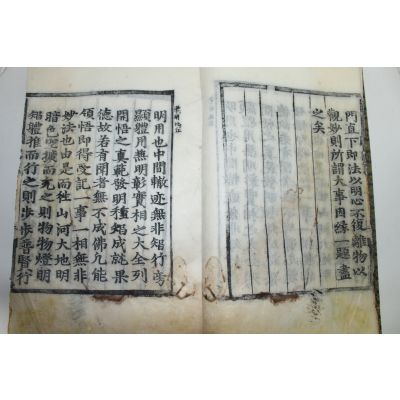 門直下即法以明心不復離物以
觀妙則所謂大事因緣一題盡
之矣
明用也中間轍迹無非智行旁
顯體用兼明彰實相之大全列
開悟之眞範發明種智成就果
德故若有聞者無不成佛凡能
領悟即得受記一事一相無非
妙法也由是而往山河大地明
暗色空擴而充之則物物燈明
智體推而行之則步步普賢行